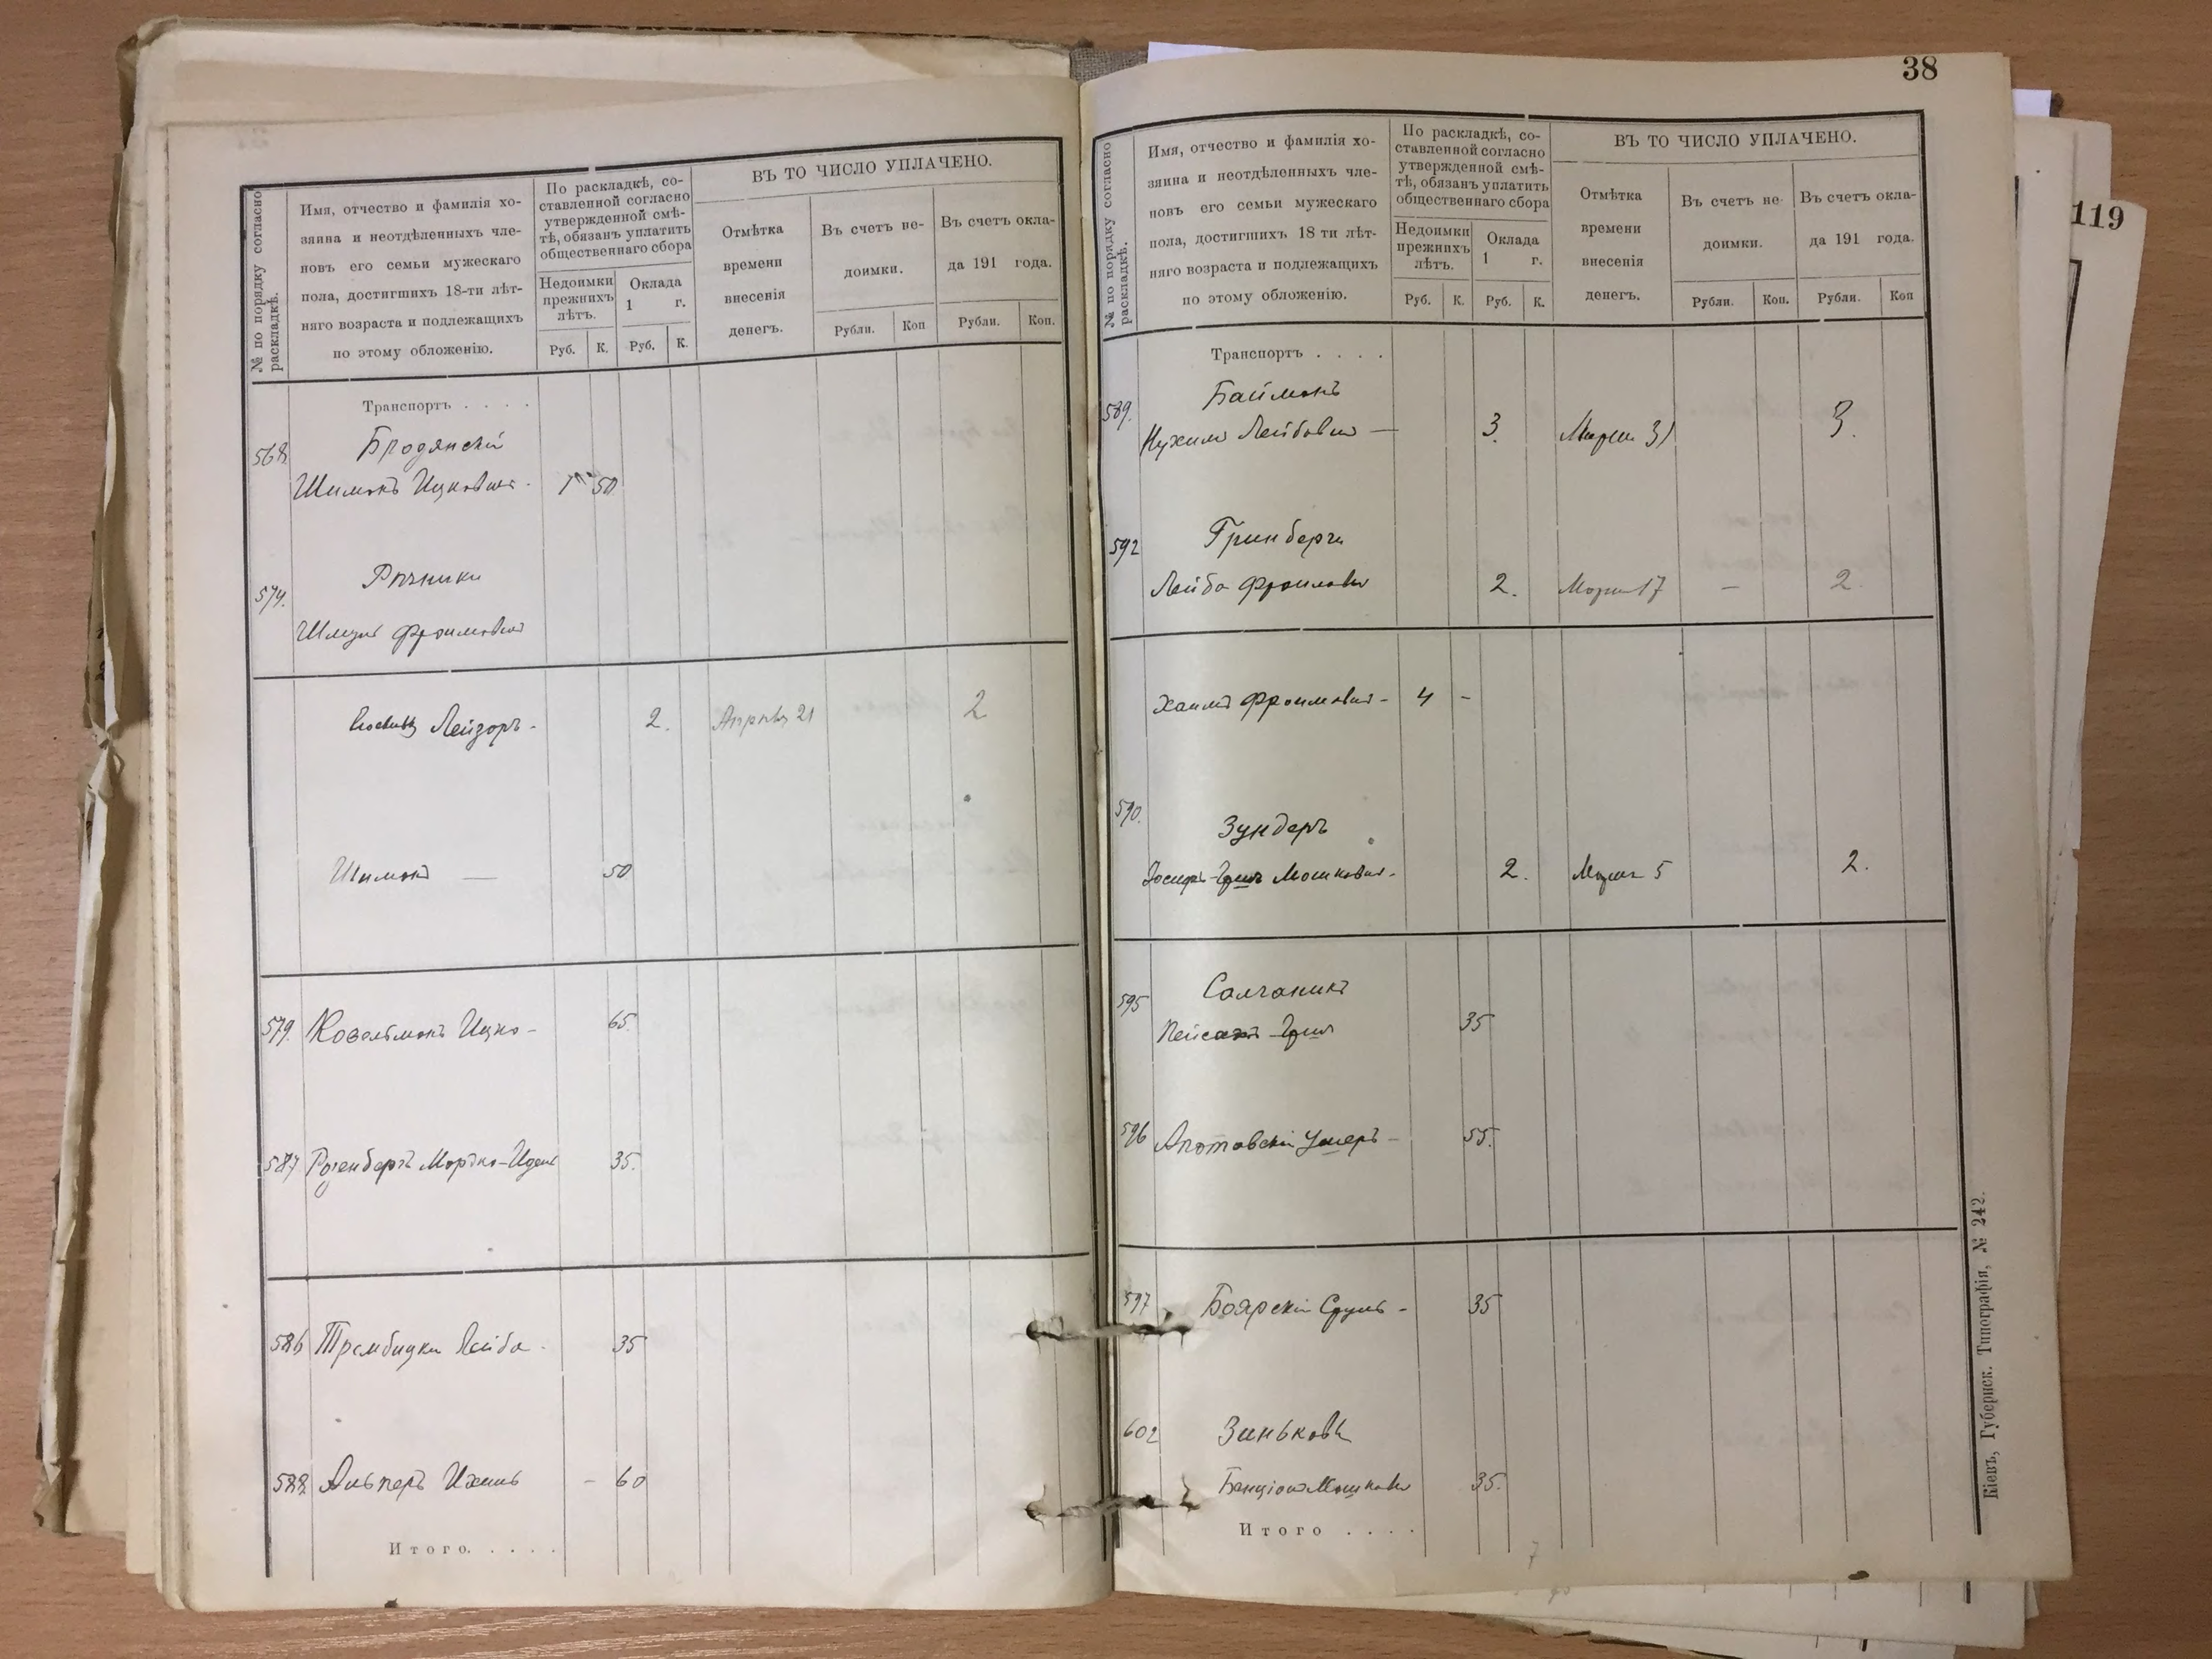 № по порядку согласно
раскладкѣ.
Имя, отчество и фамилія хо-
зяина и неотдѣленныхъ чле-
новъ его семьи мужескаго
пола, достигшихъ 18-ти лѣт-
няго возраста и подлежащихъ
по этому обложенію.
По раскладкѣ, со-
ставленной согласно
утвержденной смѣ-
тѣ, обязанъ уплатить
общественнаго сбора
Недоимки
прежнихъ
лѣтъ.
Оклада
1 г.
Руб. К. Руб. К.
ВЪ ТО ЧИСЛО УПЛАЧЕНО.
Отмѣтка
времени
внесенія
денегъ.
Въ счетъ не-
доимки.
Рубли. Коп
Въ счетъ окла-
да 191 года.
Рубли. Коп.
Транспортъ . . . .
568 Бродянскій
Шимонъ Ицковичъ - 1 50
574.
Шмуль Фроимовичъ
Лейзоръ - 2. Апрѣль 21 2
Шимонъ — 50
579. Козельманъ Ицко - 65.
587 Розенбергъ Мордко-Идель 35.
586 Трембицки Лейба - 35
588 Альперъ Ихиль - 60
Итого. . . . .
38
№ по порядку согласно
раскладкѣ.
Имя, отчество и фамилія хо-
зяина и неотдѣленныхъ чле-
новъ его семьи мужескаго
пола, достигшихъ 18 ти лѣт-
няго возраста и подлежащихъ
по этому обложенію.
По раскладкѣ, со-
ставленной согласно
утвержденной смѣ-
тѣ, обязанъ уплатить
общественнаго сбора
Недоимки
прежнихъ
лѣтъ.
Оклада
1 г.
Руб. К. Руб. К.
ВЪ ТО ЧИСЛО УПЛАЧЕНО.
Отмѣтка
времени
внесенія
денегъ.
Въ счетъ не-
доимки.
Рубли. Коп.
Въ счетъ окла-
да 191 года.
Рубли. Коп
Транспортъ . . . .
589. Баймакъ
Нухимъ Лейбовичъ — 3. Марта 31 3.
592 Гринбергъ
Лейба Фроимовичъ 2. Марта 17 - 2.
Хаимъ Фроимовичъ - 4 -
590. Зундеръ
Мошковичъ - 2. Марта 5 2.
595 Салганикъ
35
596 Апотовскій Ушеръ - 55.
597 Боярскій Сруль - 35
602 Зиньковъ
Бенціонъ Мошковичъ 35.
Итого . . . .
7
Кіевъ, Губернск. Типографія, № 242.
119